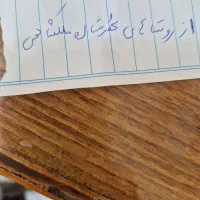 از روستا های کوهستان ملکشاهی